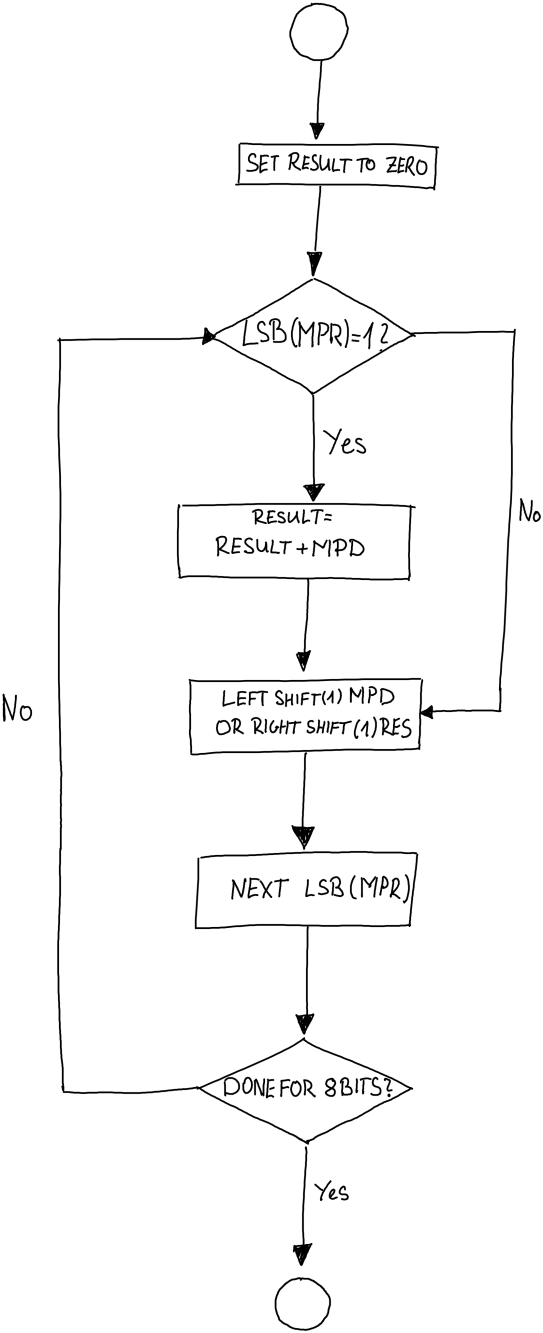 SET RESULT TO ZERO
LSB(MPR)=1?
Yes
No
RESULT=
RESULT+MPD
LEFT SHIFT(1) MPD
OR RIGHT SHIFT(1)RES
No
NEXT LSB(MPR)
DONE FOR 8BITS?
Yes